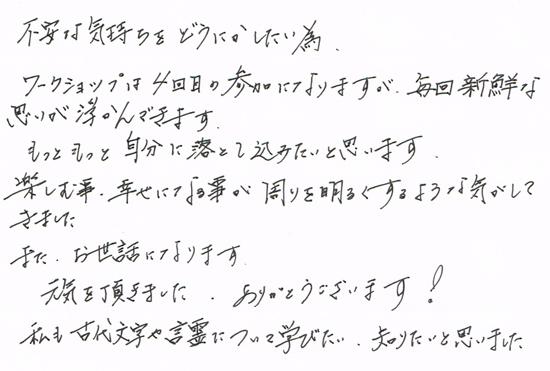 不安な気持ちをどうにかしたい為、
ワークショップは4回目の参加になりますが、毎回新鮮な
思いが浮かんできます。
もっともっと自分に落とし込みたいと思います。
楽しむ事、幸せになる事が周りを明るくするような気がして
きました
また、お世話になります。
元気を頂きました、ありがとうございます!
私も古代文字や言霊について学びたい、知りたいと思いました